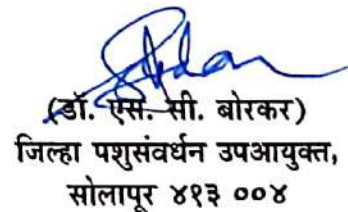 (डॉ. एस. सी. बोरकर)
जिल्हा पशुसंवर्धन उपआयुक्त,
सोलापूर ४१३ ००४